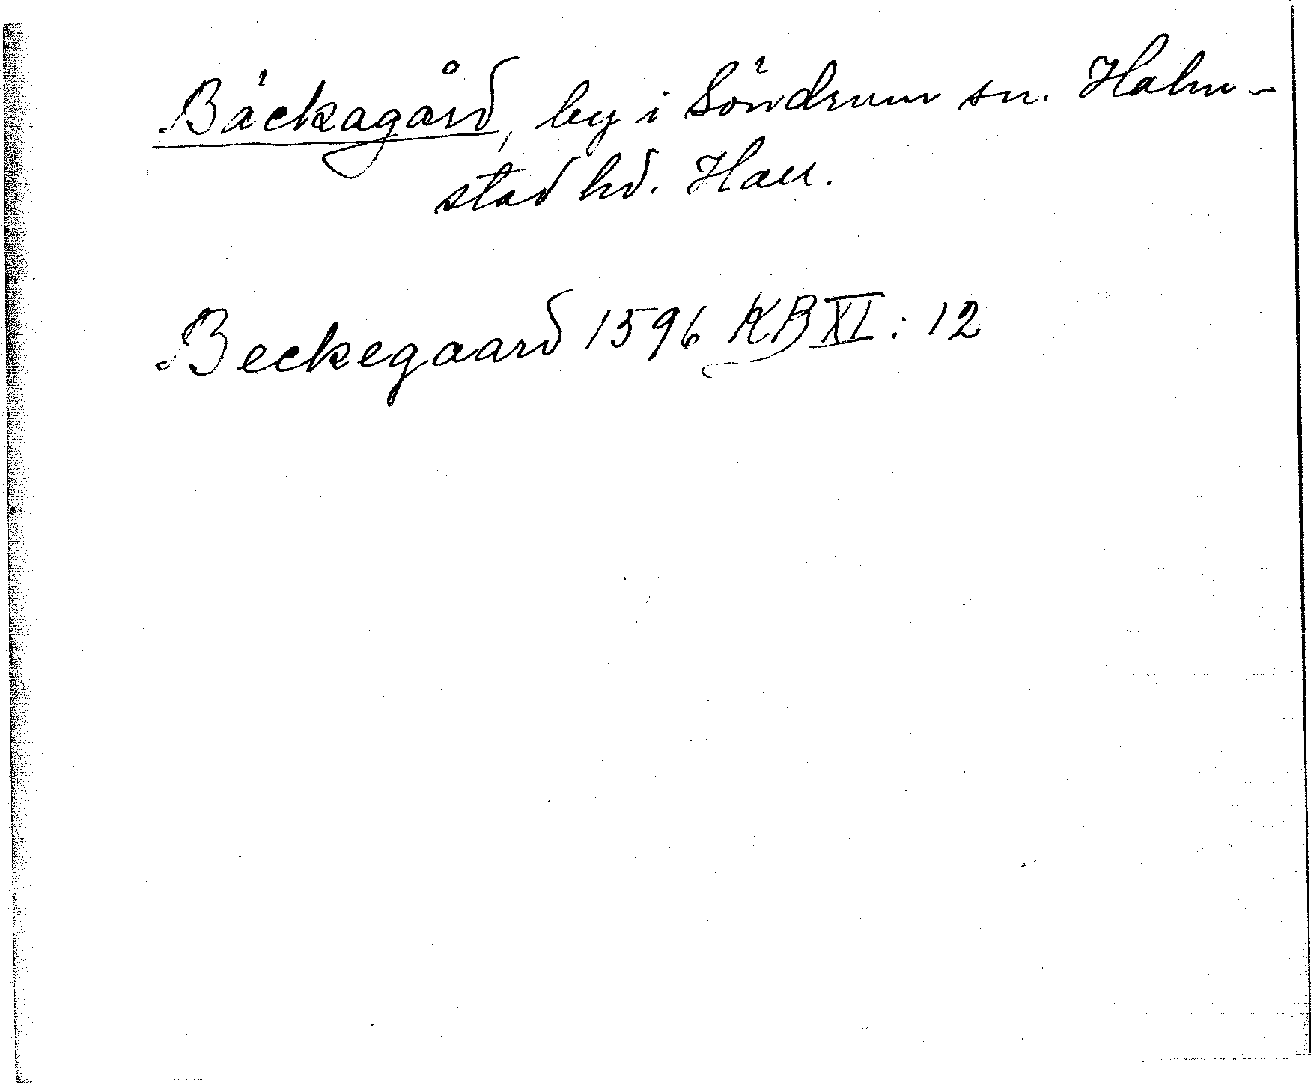 Bäckagård, by i Söndrum sn. Halm-
stad hd. Hall.
Beckegaard 1596 KB XI: 12